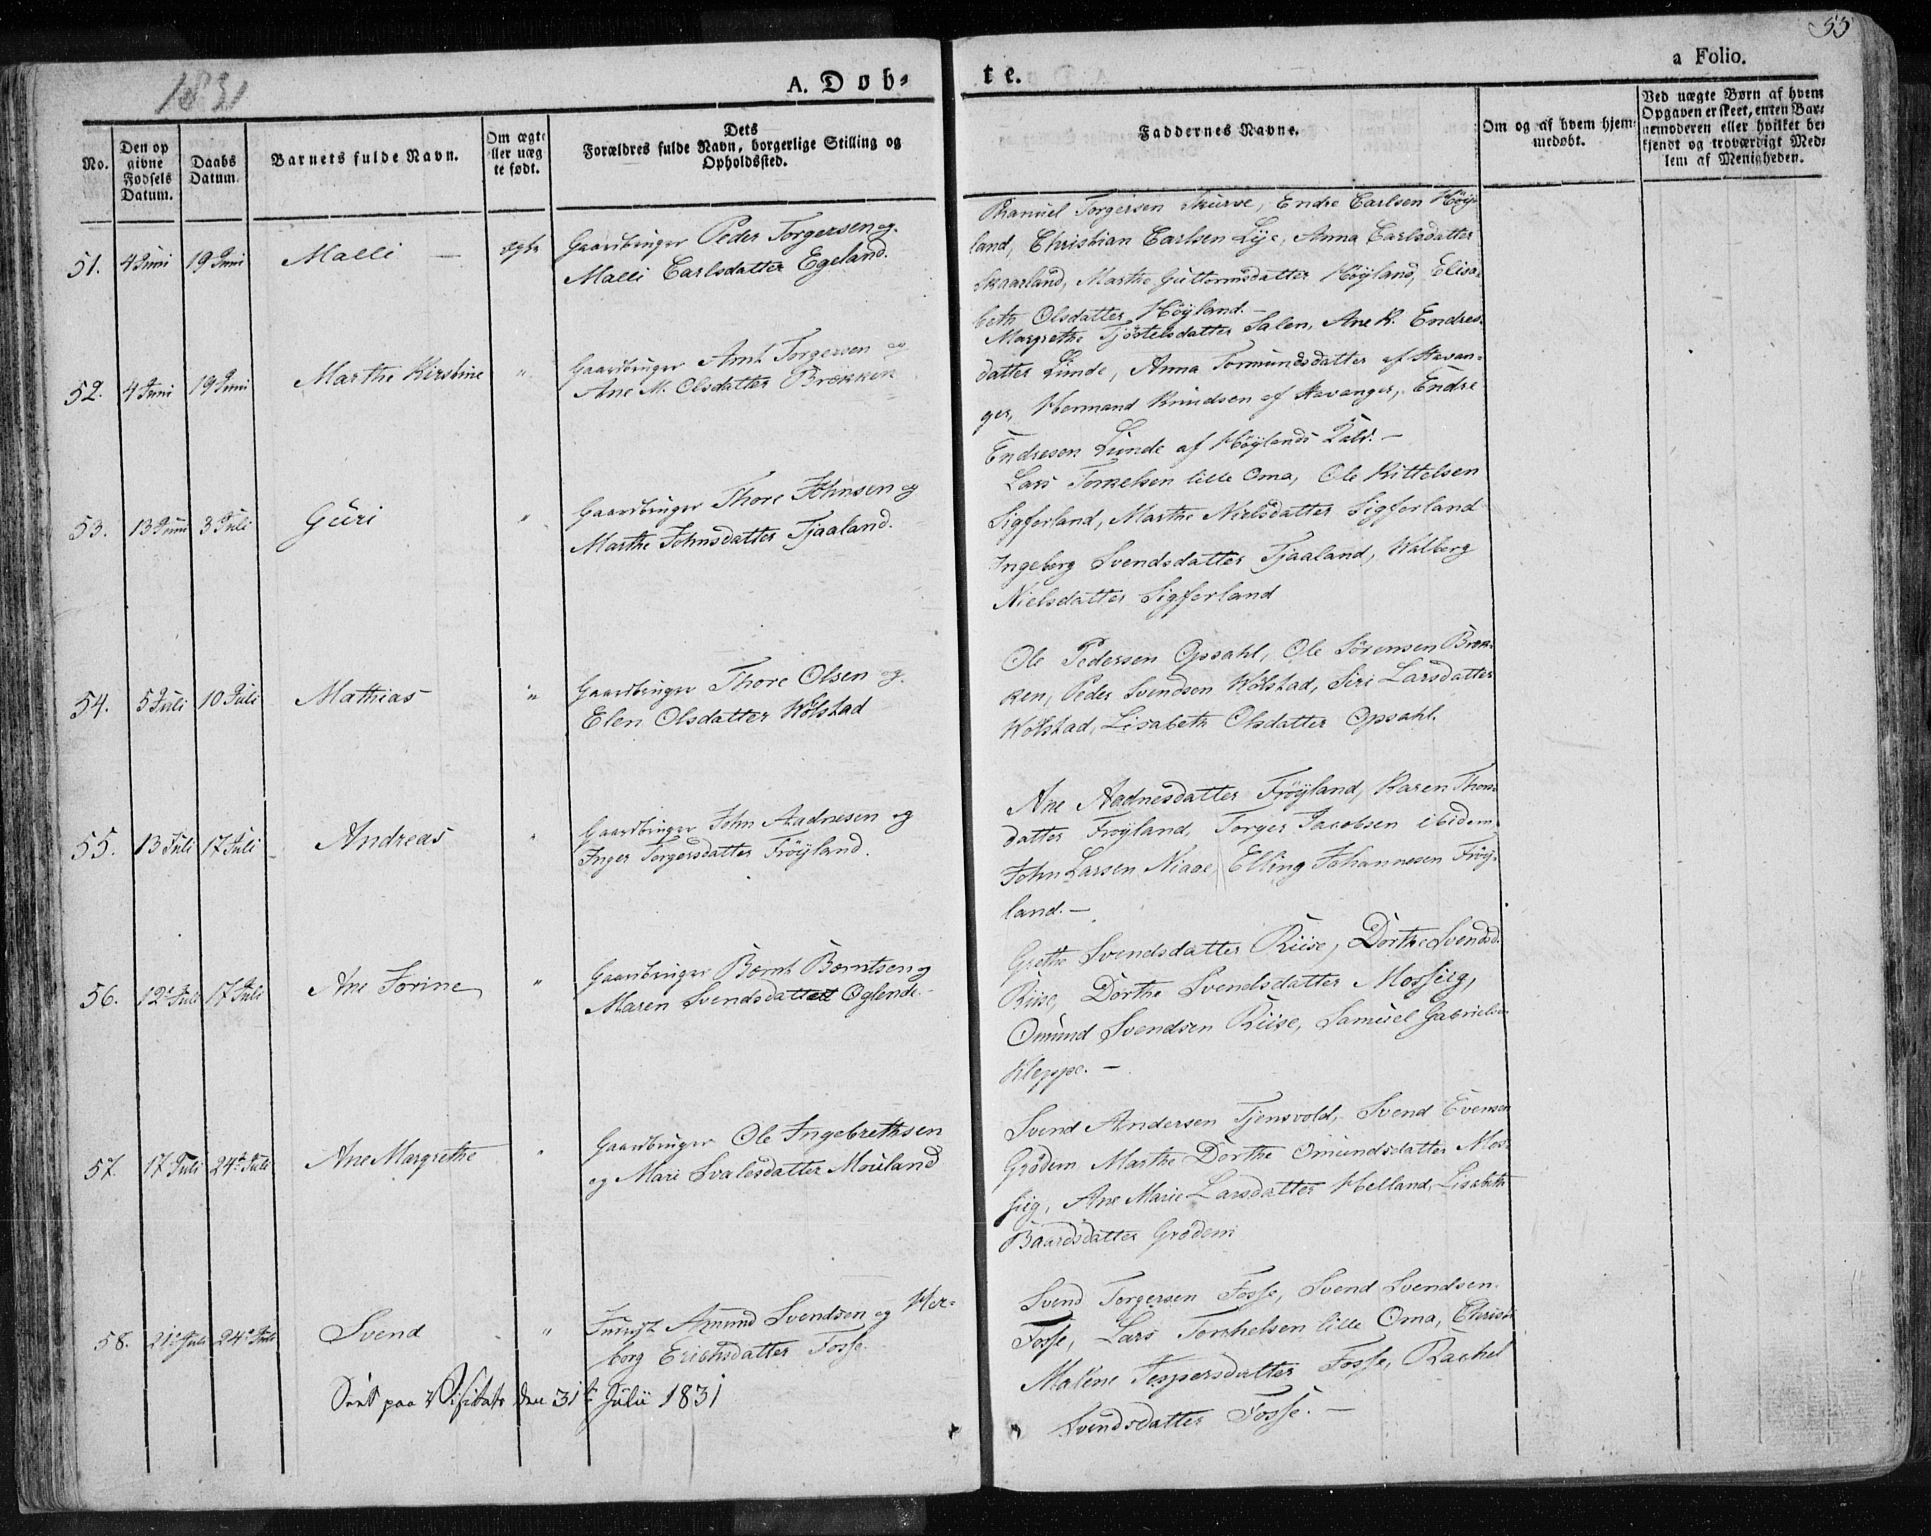 1831
A. Døb-
te.
55
a Folio.
No.
Den op
givne
Fødsels
Datum.
Daabs
Datum.
Barnets fulde Navn.
Om ægte
ller uæg
te født.
Dets
Forældres fulde Navn, borgerlige Stilling og
Opholdssted.
Faddernes Navne.
Om og af hvem hjem-
medøbt.
Ved uægte Børn af hvem
Opgaven er skeet, enten Bar-
nemoderen eller hvilket be-
kjendt og troværdigt Med-
lem af Menigheden.
51. 4 Juni 19 Juni Malli — ægte Gaardbruger Peder Torgersen og
Malli Carlsdatter Egeland.
Torgersen Skurve, Endre Carlsen Höy-
land, Christian Carlsen Lye, Anna Carlsdatter
Skaarland, Marthe Guttormsdatter Höyland, Elisa-
beth Olsdatter Höyland. —
52. 4 Juni 19 Juni Marthe Kirstine " Gaardbruger Arnt Torgersen og
Ane M. Olsdatter Brökken
Margrethe Tjöstelsdatter Salen, Ane K. Endres-
datter Lunde, Anna Tormundsdatter af Stavan-
ger, Hermand Knudsen af Stavanger, Endre
Endresen Lunde af Höylands Qald. —
53. 13 Juni 3 Juli Guri " Gaardbruger Thore Johnsen og
Marthe Johnsdatter Tjaaland.
Lars Torkelsen lille Oma, Ole Kittelsen
Sigferland, Marthe Nielsdatter Sigferland
Ingeborg Svendsdatter Tjaaland, Walberg
Nielsdatter Sigferland
54. 5 Juli 10 Juli Mathias " Gaardbruger Thore Olsen og
Elen Olsdatter Wölstad
Ole Pedersen Opsahl, Ole Sörensen Brök-
ken, Peder Svendsen Wölstad, Siri Larsdatter
Wölstad, Lisabeth Olsdatter Opsahl.
55. 13 Juli 17 Juli Andreas " Gaardbruger John Aadnesen og
Inger Torgersdatter Fröyland.
Ane Aadnesdatter Fröyland, Karen Thors-
datter Fröyland, Torger Jacobsen ibidem
John Larsen Niaae, Elling Johannesen Fröy-
land. —
56. 12 Juli 17 Juli Ane Torine " Gaardbruger Börnt Börntsen og
Maren Svendsdatter Oglende. —
Grethe Svendsdatter Riise, Dorthe Svendsd.
Riise, Dorthe Svendsdatter Mossig,
Omund Svendsen Riise, Samuel Gabrielsen
Kleppe. —
57. 17 Juli 24 Juli Ane Margrethe " Gaardbruger Ole Ingebrethsen
og Mari Svalesdatter Mouland
Svend Andersen Tjensvold, Svend Evensen
Grödem Marthe Dorthe Omundsdatter Mos-
sieg, Ane Marie Larsdatter Helland, Lisabeth
Baardsdatter Grödem
58. 21 Juli 24 Juli Svend " Amund Svendsen og Her-
borg Erichsdatter Fosse.
Svend Torgersen Fosse, Svend Svendsen
Fosse, Lars Torkhelsen lille Oma, Christi
Malene Jespersdatter Fosse, Rachel
Svendsdatter Fosse. —
Seet paa Visitats den 31te Julii 1831